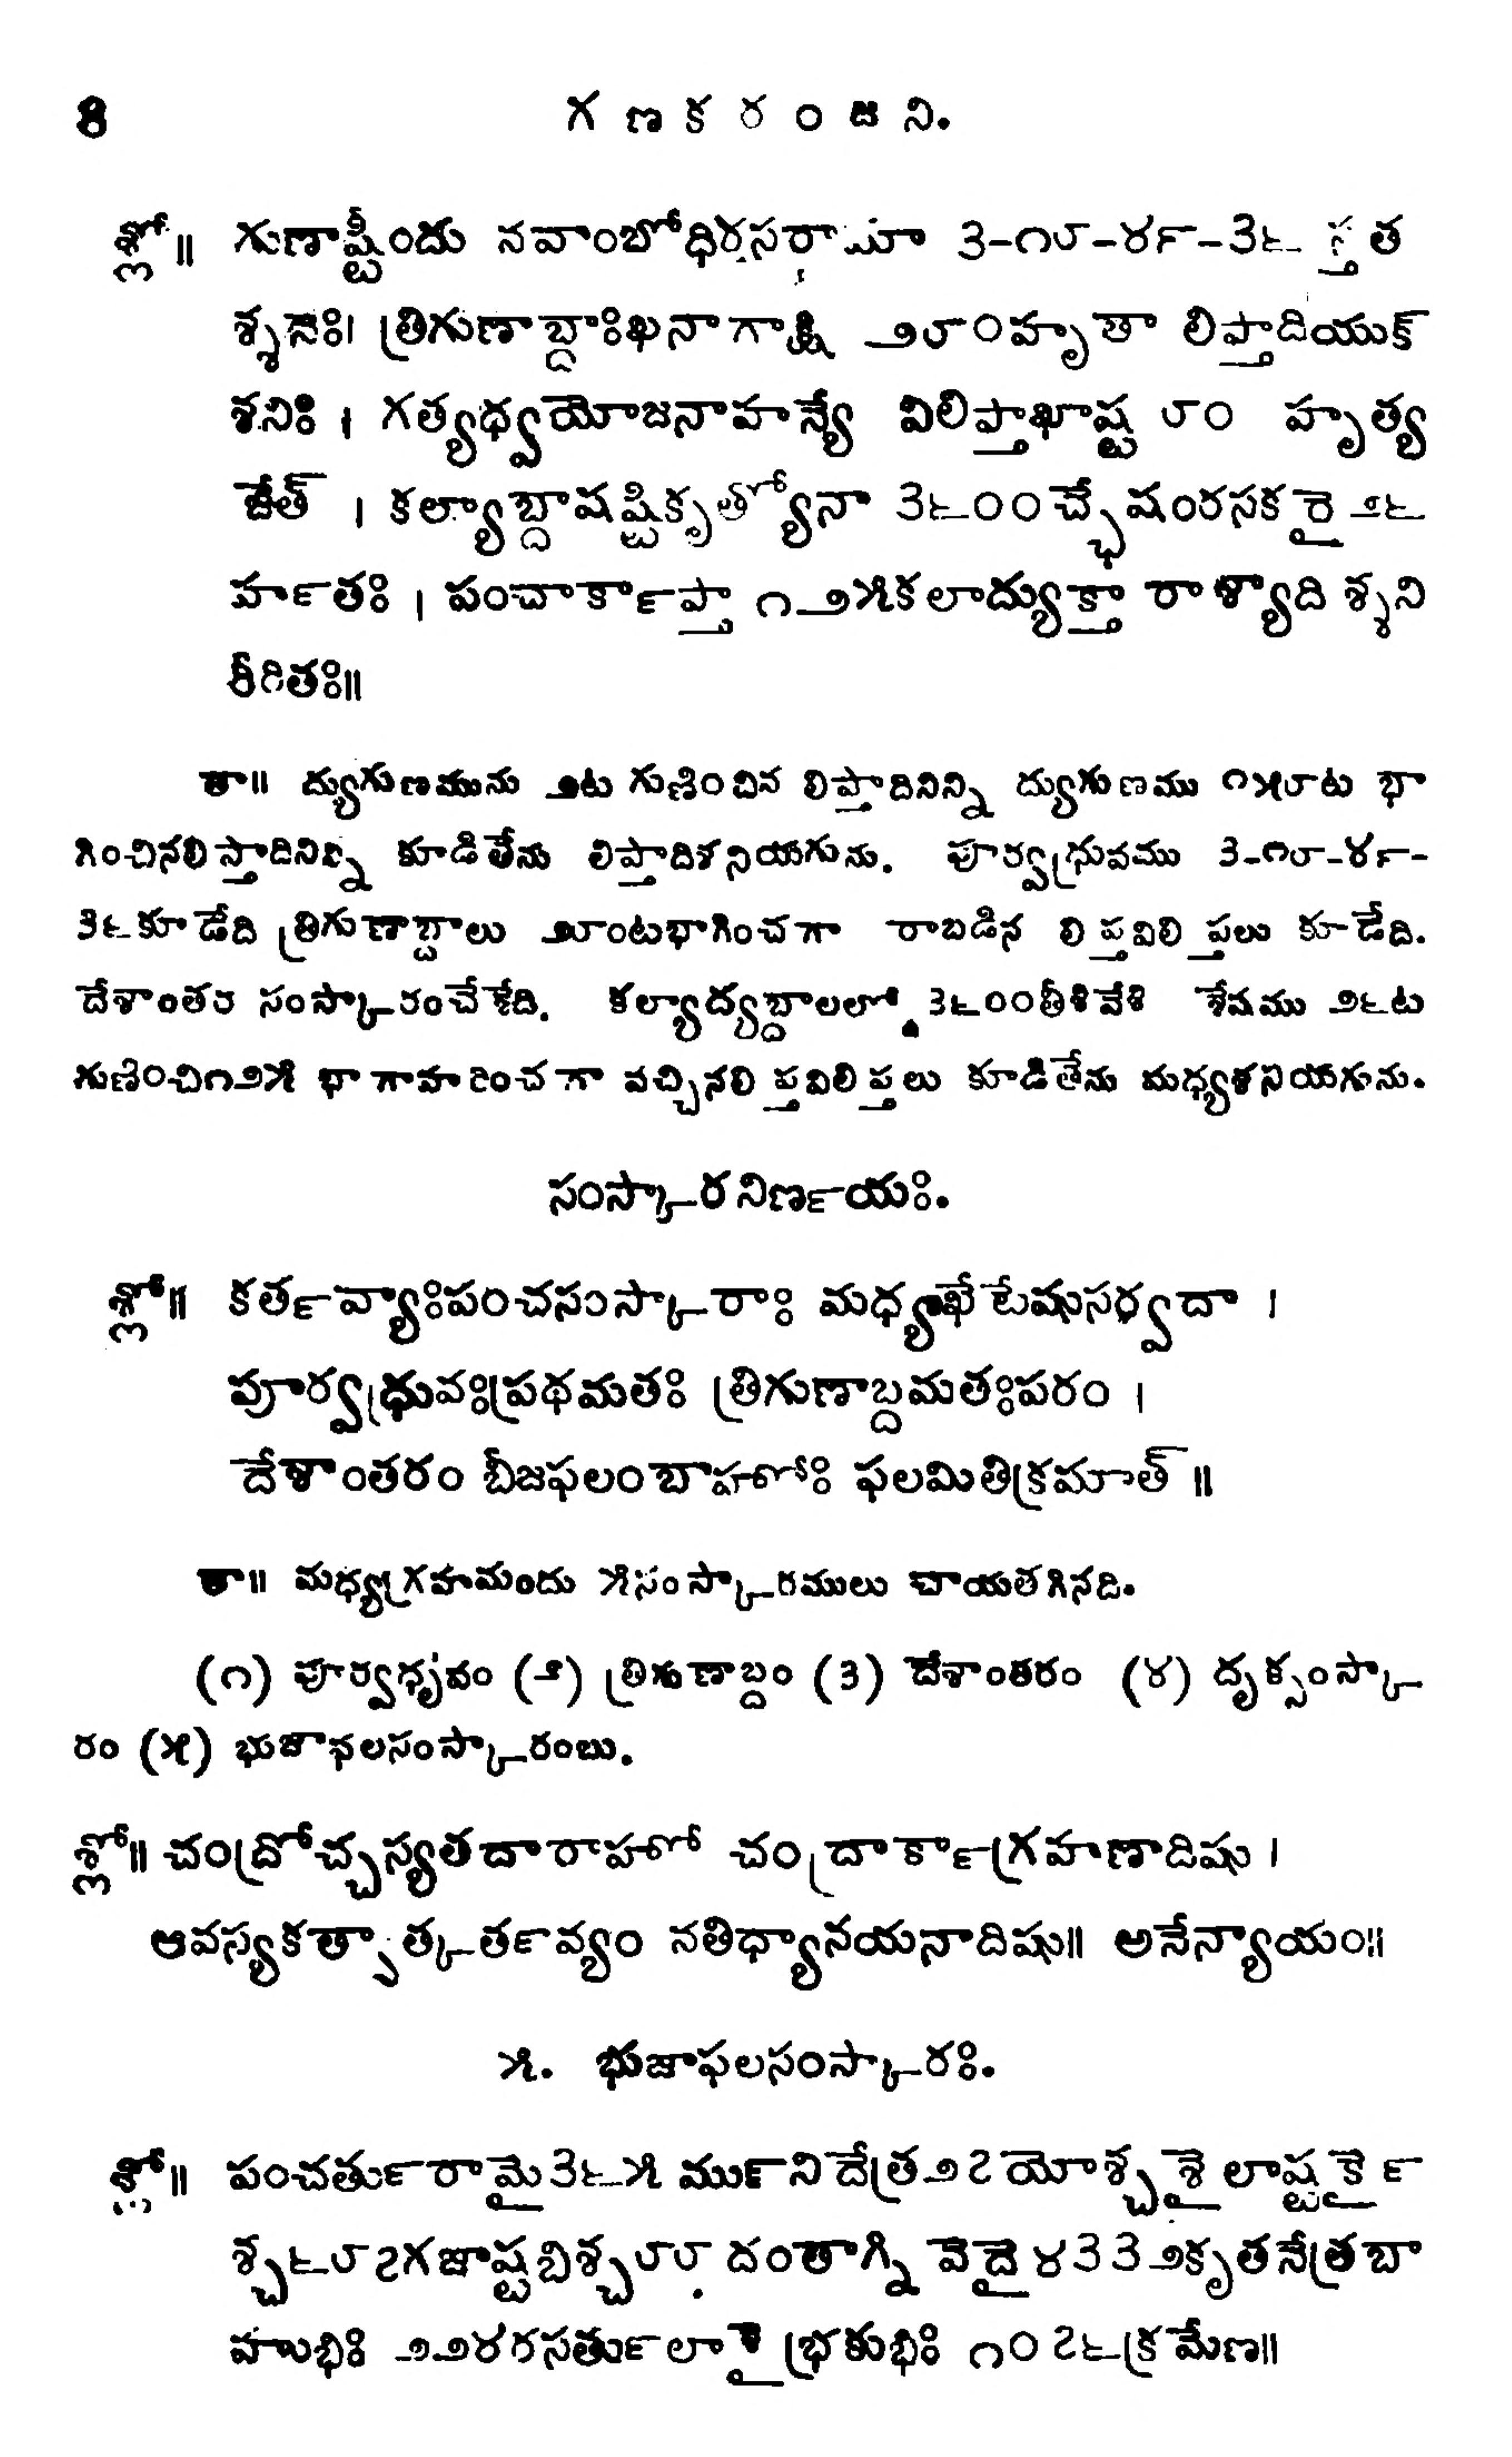 8 గణకరంజని.
శ్లో॥ గుణాష్టీందు నవాంబోధిర్రసరామా 3-౧౮-౪౯-3౬ స్తత
శ్శనేః। త్రిగుణాబ్దాఃఖనాగాక్షి ౨౮౦హృతా లిప్తాదియుక్
శనిః । గత్యధ్వయోజనాహన్యే విలిప్తాఖాష్ట ౮౦ హృత్య
జేత్ । కల్యాబ్దాషష్టికృత్యోనా 3౬౦౦చ్ఛేషంరసకరై ౨౬
ర్హతః । పంచార్కాప్తా ౧౨౫కలాద్యుక్తా రాశ్యాది శ్శని
రీగితః॥
తా॥ ద్యుగుణమును ౨ట గుణించిన లిప్తాదినిన్ని ద్యుగుణము ౧౫౮ట భా
గించినలిప్తాదినిన్ని కూడితేను లిప్తాదిశనియౌగును. పూర్వధ్రువము 3-౧౮-౪౯-
3౬కూడేది త్రిగుణాబ్దాలు ౨౮౦ంటభాగించగా రాబడిన లిప్తవిలిప్తలు కూడేది.
దేశాంతర సంస్కారంచేశేది. కల్యాద్యబ్దాలలో 3౬౦౦తీశివేశి శేషము ౨౬ట
గుణించి౧౨౫ భాగాహరించగా వచ్చినలిప్తవిలిప్తలు కూడితేను మధ్యశనియౌగును.
సంస్కారనిర్ణయః.
శ్లో॥ కర్తవ్యాఃపంచసంస్కారాః మధ్యఖేటేషుసర్వదా ।
పూర్వధ్రువఃప్రథమతః త్రిగుణాబ్దమతఃపరం ।
దేశాంతరం బీజఫలంబాహోః ఫలమితిక్రమాత్ ॥
తా॥ మధ్యగ్రహమందు ౫సంస్కారములు చాయతగినది.
(౧) పూర్వధృవం (౨) త్రిగుణాబ్దం (3) దేశాంతరం (౪) దృక్సంస్కా
రం (౫) భుజాఫలసంస్కారంబు.
శ్లో॥ చంద్రోచ్చస్యతదారాహో చంద్రార్కాగ్రహణాదిషు ।
ఆవస్యకత్వాత్కర్తవ్యం నతిధ్యానయనాదిషు॥ అనేన్యాయం॥
౫. భుజాఫలసంస్కారః.
శ్లో॥ పంచర్తురామై3౬౫ ర్మునిదేత్ర౨౭యోశ్చశైలాష్టర్కై
శ్చ౬౮౭గజాష్టబిశ్చ౮౮ దంతాగ్ని వెదై ౪33౨కృతనేత్రబా
హుభిః ౨౨౪రసర్తులాశై భ్రకుభిః ౧౦౭౬క్రమేణ॥